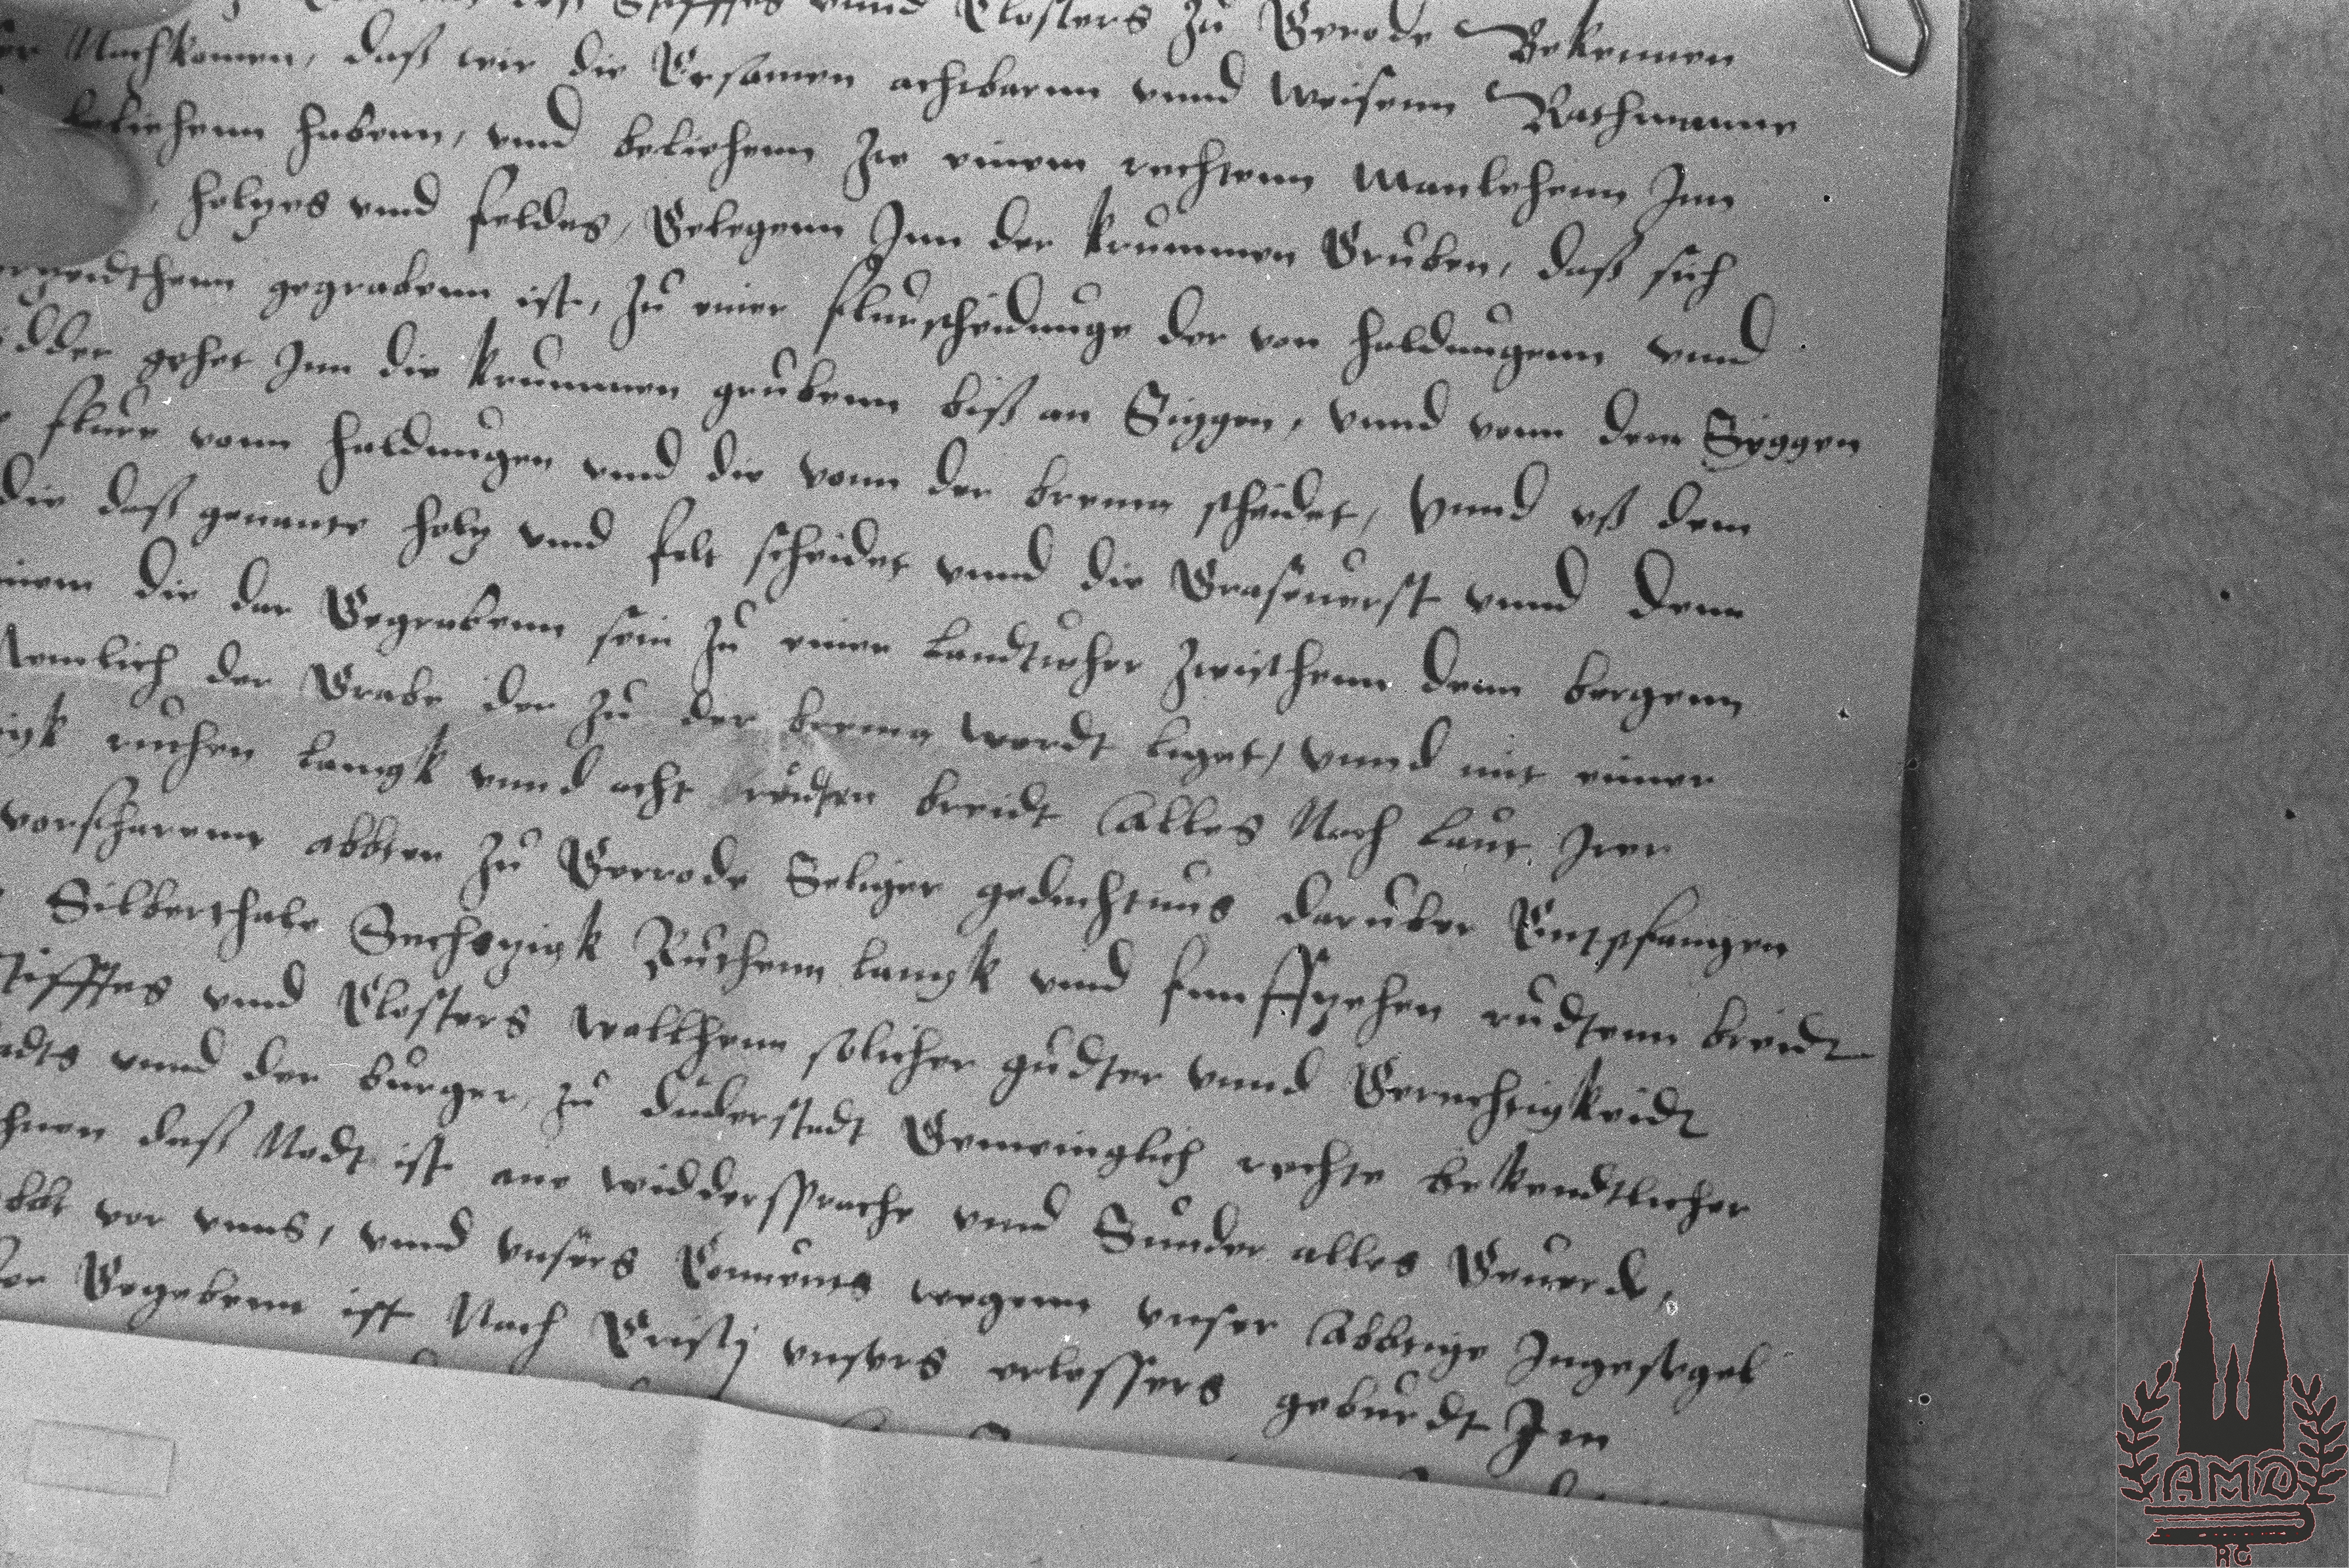 Stifftes vnnd Closters Zu Gerode Bekennen
Nachkomen, daß wir die Ersamen achtbarnn vnnd Weisenn Rathmanne
beliehenn habenn, vnd beliehenn Zu einem rechtenn Manlehenn Inn
, holzes vnnd feldes, Gelegenn Inn der krummen Gruben, daß sich
gegrabenn ist, Zu einer flurscheidunge der von haldungenn vnnd
gehet Inn die krummen grubenn biß an Siggen, vnnd vonn dem Syggen
flure vonn haldungen vnnd die vonn der bremn scheidet, Vnnd vß dem
die daß genante holz vnnd felt scheidet vnnd die Graseuerst vnnd denn
die dar Gegrabenn sein Zu einer Landtweher Zwisthenn denn bergenn
Nemlich der Grabe der Zu der bremn werdt liget, vnnd mit einer
ruthen langk vnnd acht rudten breidt Alles Nach laut Irer
vorfharenn abbten Zu Gerrode Seliger gedechtnus daruber Entpfangen
Silberthale Sechszigk Ruthenn langk vnnd funffzehen rudtenn breidt
Stifftes vnnd Closters wallthenn solicher gudter vnnd Gerechtigkeidt
vnnd der burger, Zu duderstadt Gemeinglich rechte bekendtlicher
daß Nodt ist ane widdersprache vnnd Sunder alles Geuerde,
abbt vor vnns, vnnd vnsers Conuents wegenn vnser Abbtige Ingesigel
Gegebenn ist Nach Cristj vnsers erlossers geburdt Im
AMD
RG